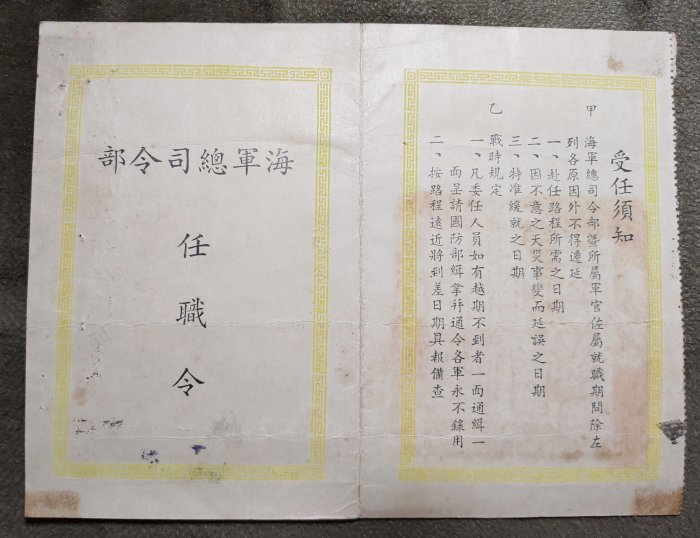 受任須知
甲 海軍總司令部暨所屬軍官佐屬就職期間除左
列各原因外不得遷延
一、赴任路程所需之日期
二、因不意之天災事變而延誤之日期
三、特准緩就之日期
乙 戰時規定
一、凡委任人員如有越期不到者一面通緝一
面呈請國防部緝拿并通令各軍永不錄用
二、按路程遠近將到差日期具報備查
海軍總司令部
任職令